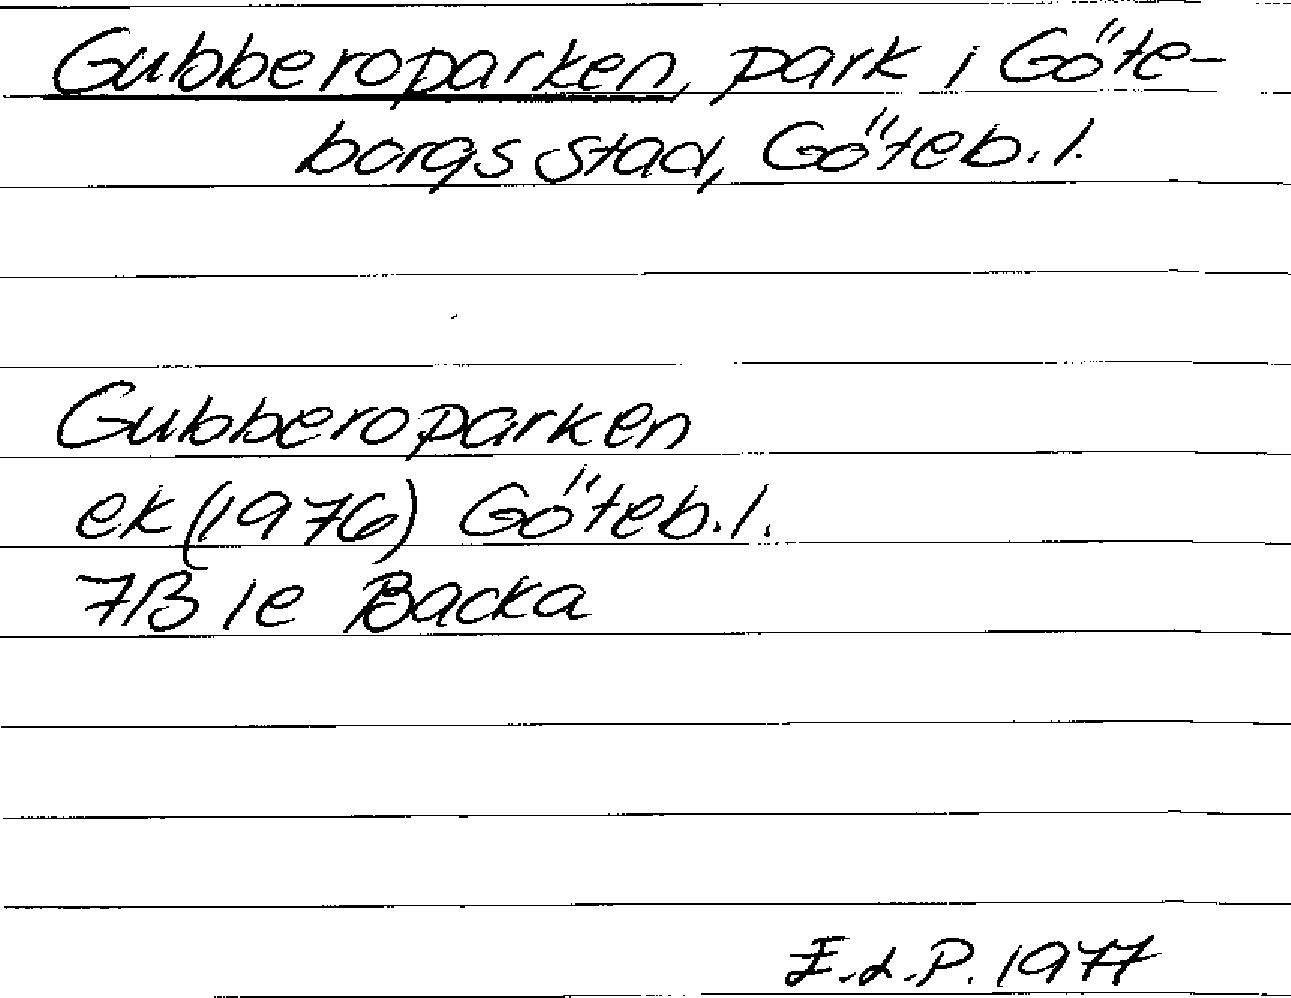 Gubberoparken, park i Göte-
borgs stad, Göteb.l.
Gubberoparken
ek (1976) Göteb.l.
7B 1e Backa
I.d.P. 1977